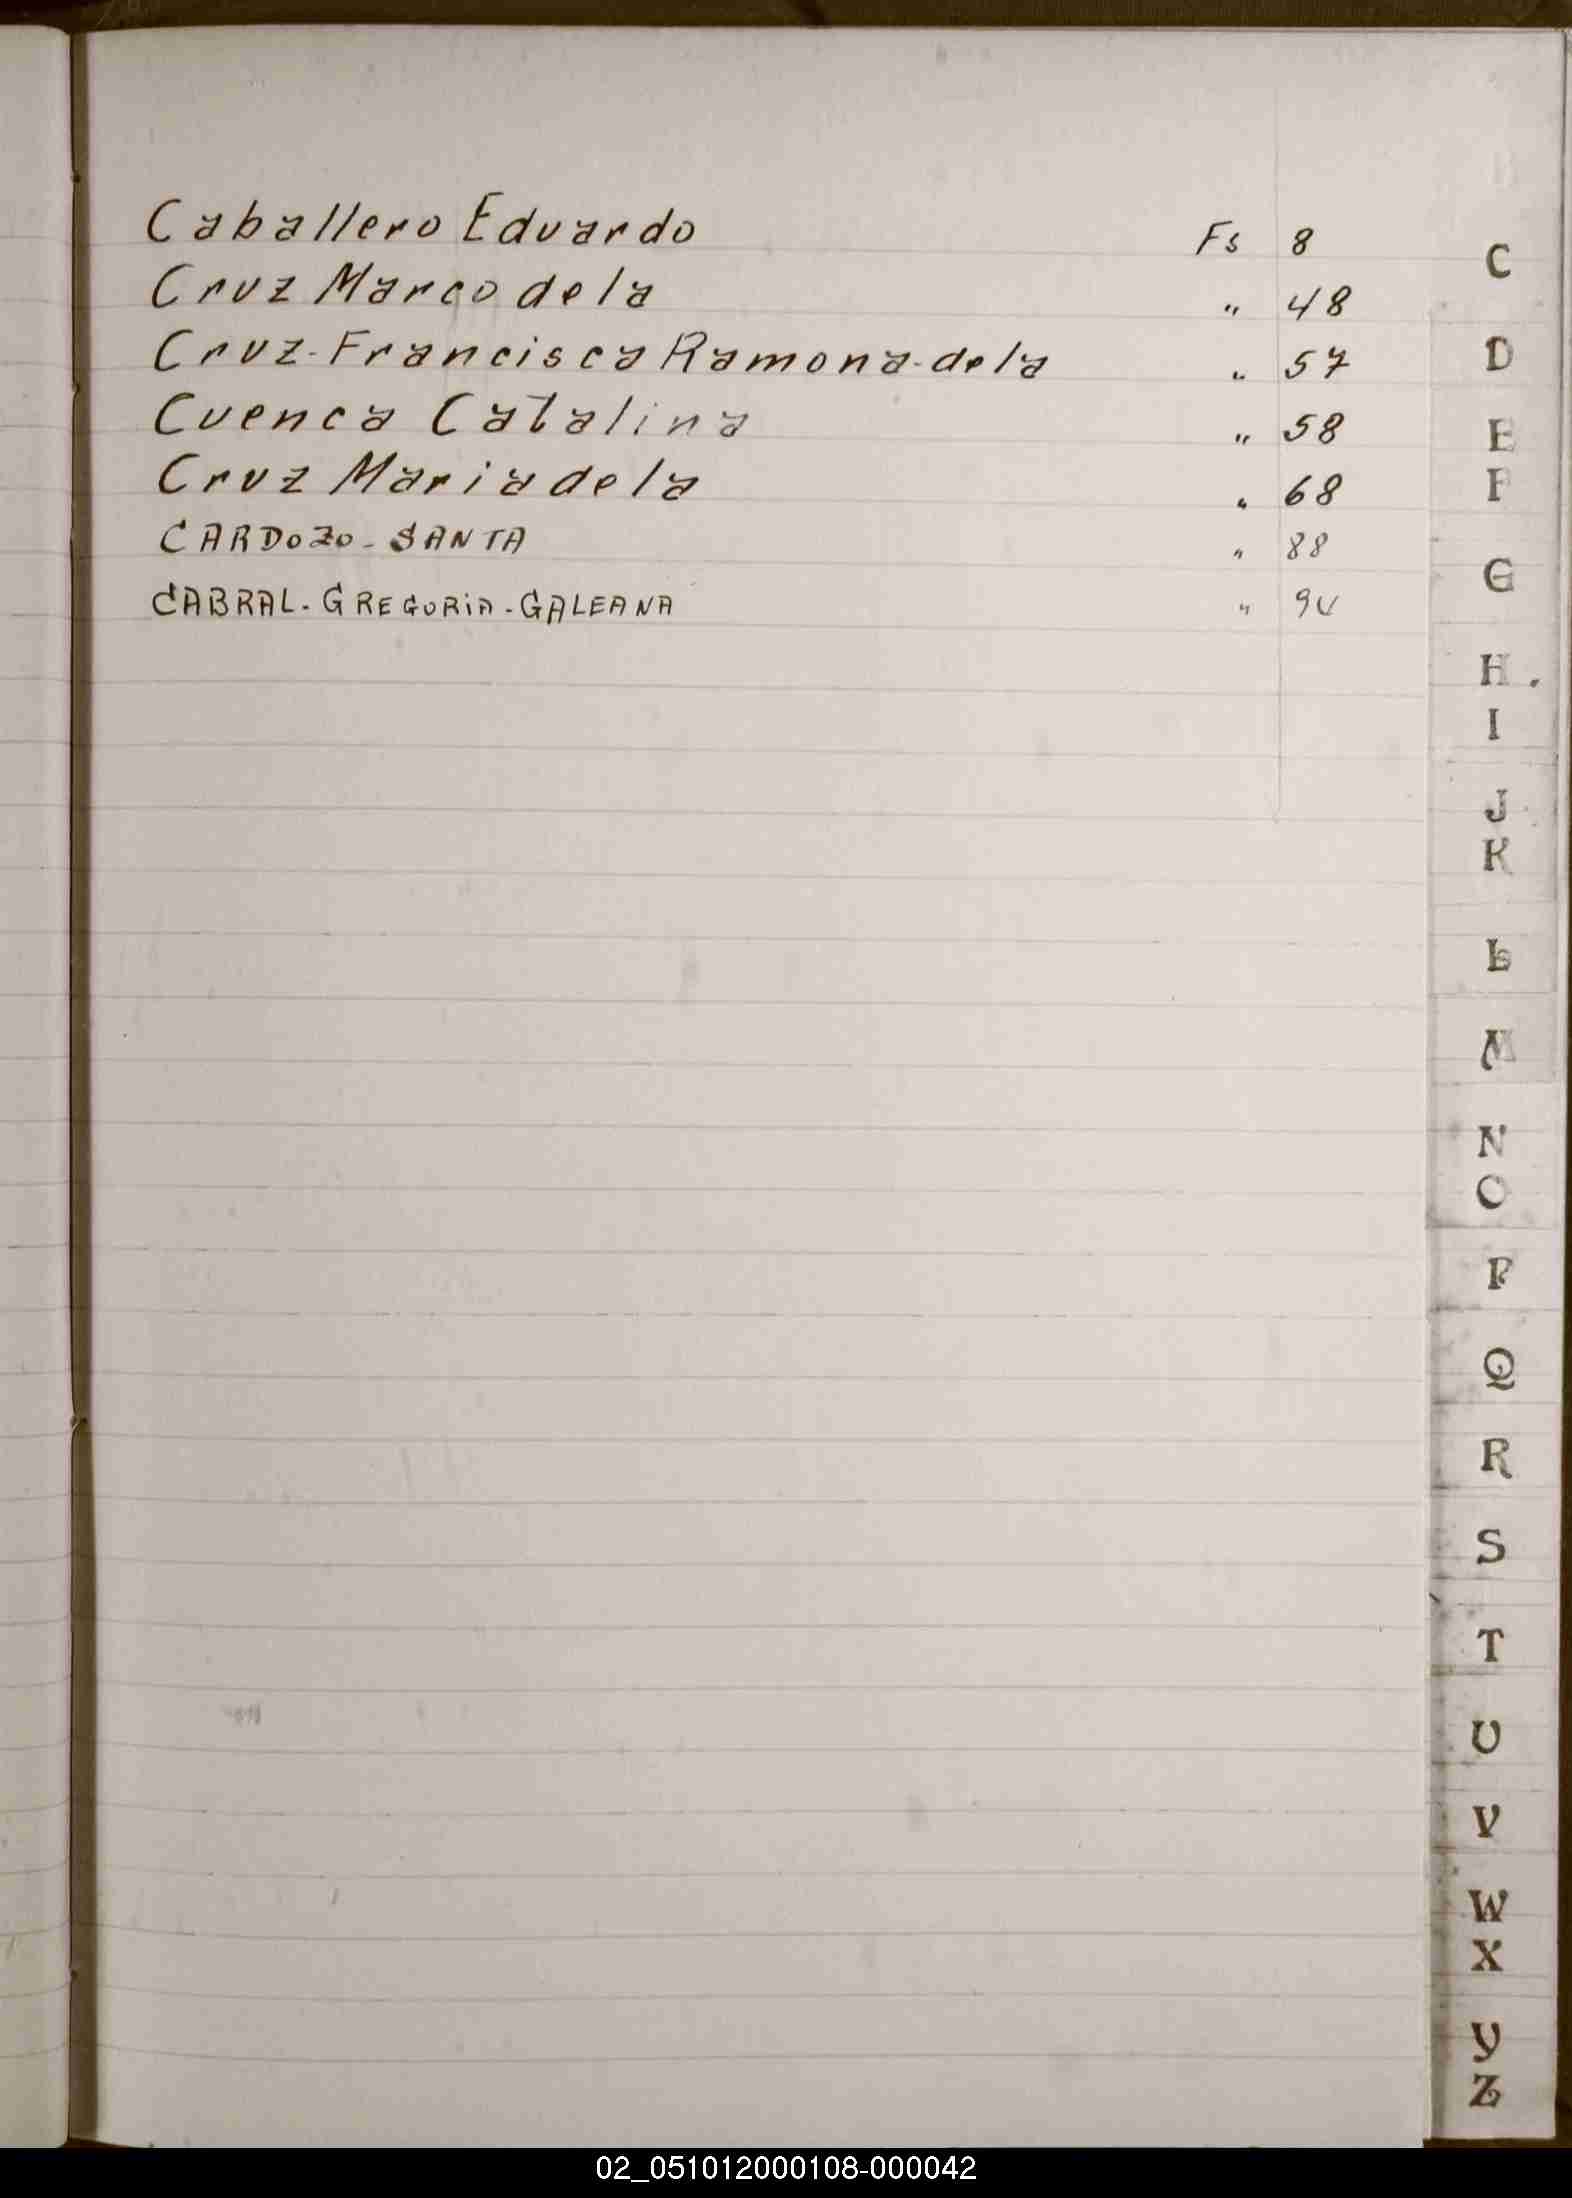 Caballero Eduardo Fs 8
Cruz Marco de la " 48
Cruz-Francisca Ramona-de la " 57
Cuenca Catalina " 58
Cruz Maria de la " 68
CARDOZO-SANTA " 88
CABRAL-GREGORIA-GALEANA " 94
C
D
E
F
G
H
I
J
K
L
M
N
O
P
Q
R
S
T
U
V
W
X
Y
Z
02_051012000108-000042